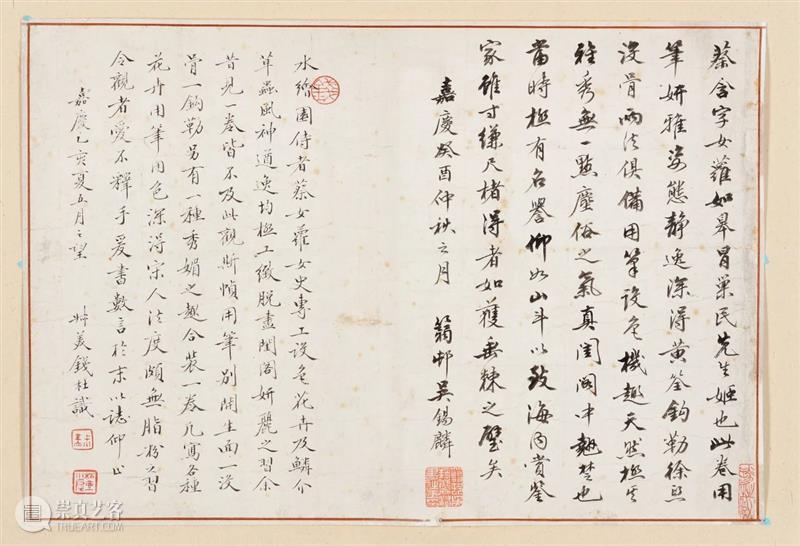 蔡含字女蘿如皋冒巢民先生姬也此卷用
筆妍雅姿態靜逸深得黃筌鉤勒徐熙
沒骨兩法俱備用筆設色機趣天然極其
雅秀無一點塵俗之氣真閨閣中翹楚也
當時極有名譽仰如山斗以致海內賞鑒
家雖寸縑尺楮得者如獲垂棘之璧矣
嘉慶癸酉仲秋之月
蒻邨吳錫麟
水繪園侍者蔡女蘿女史專工設色花卉及鱗介
草蟲風神遒逸均極工緻脫盡閨閣妍麗之習余
昔見一卷皆不及此觀斯愼用筆別開生面一沒
骨一鉤勒另有一種秀媚之趣合裝一卷凡寫各種
花卉用筆用色深得宋人法度頗無脂粉之習
令觀者愛不釋手爰書數言於末以誌仰止
嘉慶乙亥夏五月之望
叔美錢杜識
崇真艺客
TRUEART.COM